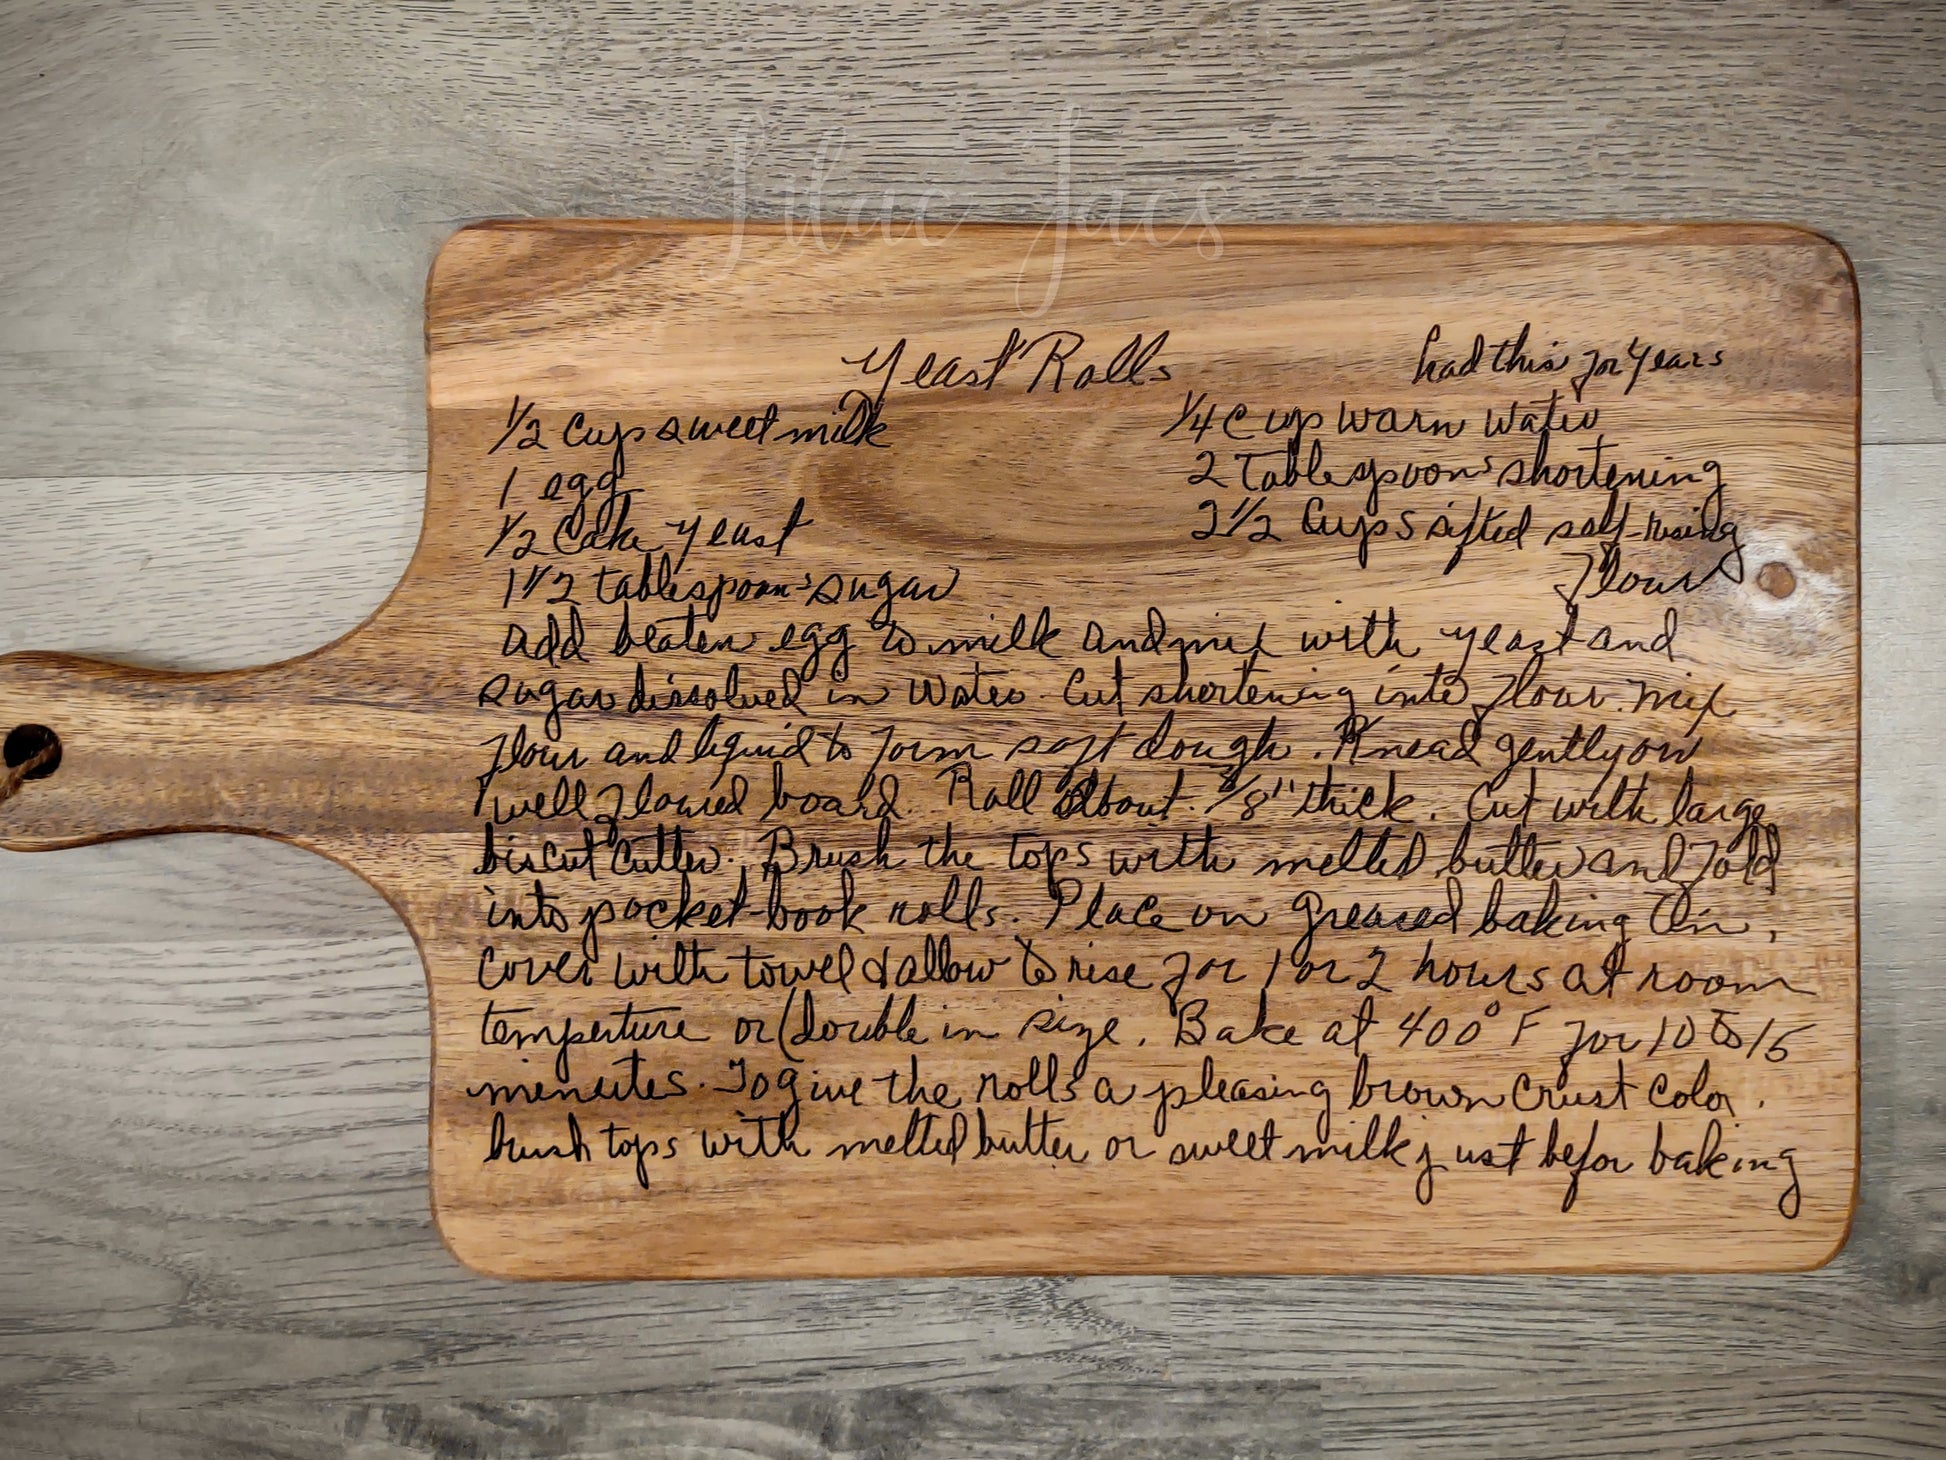 Lilac Jacs
Yeast Rolls
had this for years
1/2 Cup sweet milk
1/4 Cup warn water
1 egg
2 Tablespoons shortening
1/2 Cake yeast
2 1/2 Cups sifted self-rising
flour
1 1/2 tablespoons sugar
add beaten egg to milk and mix with yeast and
sugar dissolved in water. Cut shortening into flour. Mix
flour and liquid to form soft dough. Knead gently on
well floured board. Roll about 3/8" thick. Cut with large
biscut cutter. Brush the tops with melted butter and fold
into pocket-book rolls. Place on greased baking tin,
cover with towel & allow to rise for 1 or 2 hours at room
temperture or (double in size. Bake at 400° F for 10 to 15
minutes. To give the rolls a pleasing brown crust color.
brush tops with melted butter or sweet milk just befor baking